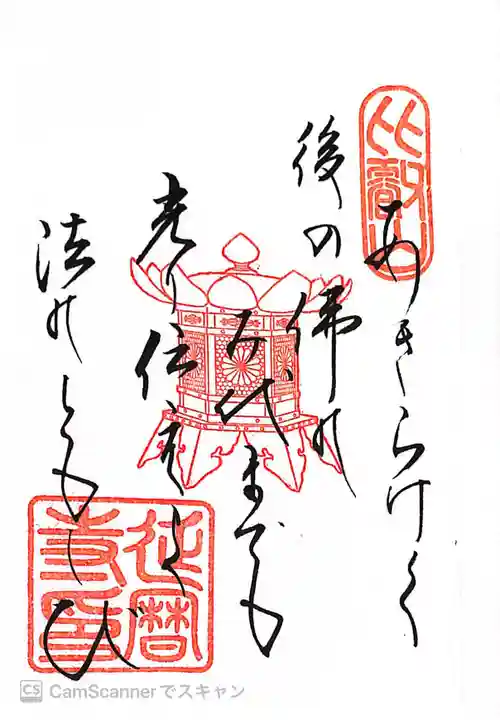 比叡山
あきらけく
後の佛の
み代までも
光り伝へよ
法のともしび
延暦
寺印
CS CamScannerでスキャン